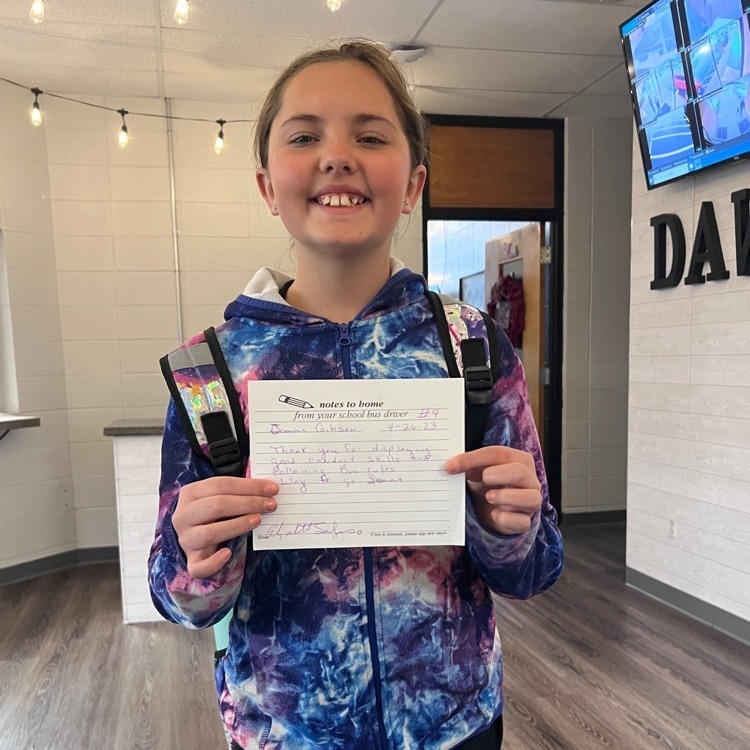 DAW
notes to home
from your school bus driver #9
Gibson 4-26-23
Thank you for displaying
good conduct skills and
following Bus rules
Way to go
Driver
If box is checked, please sign and return